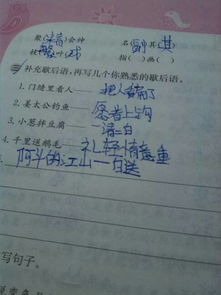 聚精会神 名副其实
枝繁叶茂 指( )画( )
三 补充歇后语,再写几个你熟悉的歇后语。
1. 门缝里看人——把人看扁了
2. 姜太公钓鱼——愿者上钩
3. 小葱拌豆腐——一清二白
4. 千里送鹅毛——礼轻情意重
5. 阿斗的江山——白送
写句子。